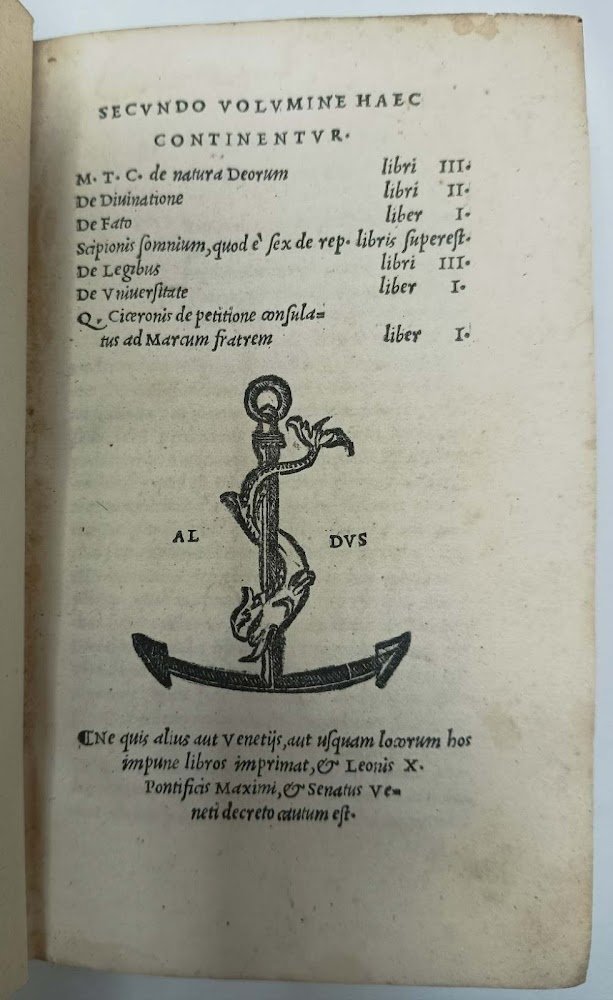 SECVNDO VOLVMINE HAEC
CONTINENTVR.
M. T. C. de natura Deorum libri III.
De Diuinatione libri II.
De Fato liber I.
Scipionis somnium, quod è sex de rep. libris superest.
De Legibus libri III.
De Vniuersitate liber I.
Q. Ciceronis de petitione consula=
tus ad Marcum fratrem liber I.
AL DVS
¶Ne quis alius aut Venetijs, aut usquam locorum hos
impune libros imprimat, & Leonis X.
Pontificis Maximi, & Senatus Ve=
neti decreto cautum est.